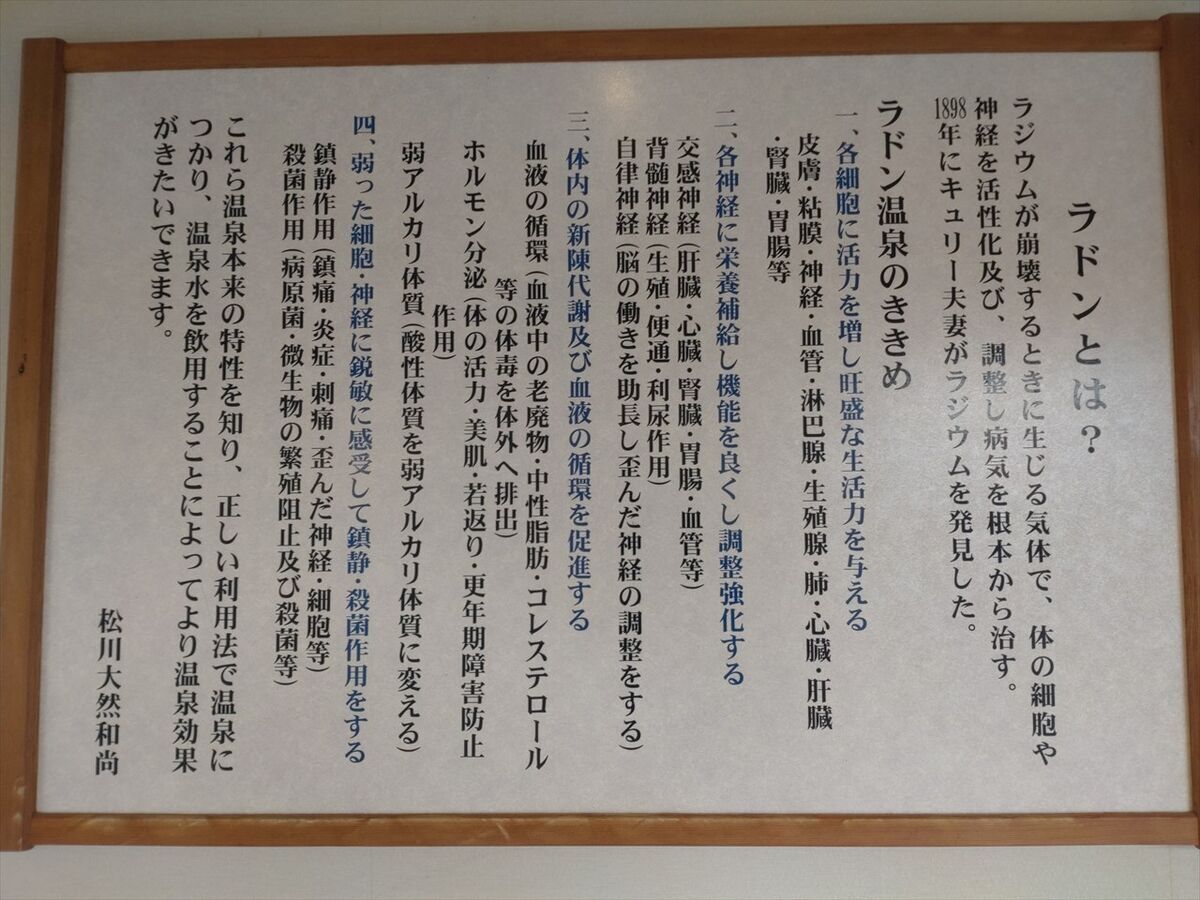 ラドンとは？
ラジウムが崩壊するときに生じる気体で、体の細胞や
神経を活性化及び、調整し病気を根本から治す。
1898年にキュリー夫妻がラジウムを発見した。
ラドン温泉のききめ
一、各細胞に活力を増し旺盛な生活力を与える
皮膚・粘膜・神経・血管・淋巴腺・生殖腺・肺・心臓・肝臓
・腎臓・胃腸等
二、各神経に栄養補給し機能を良くし調整強化する
交感神経(肝臓・心臓・腎臓・胃腸・血管等)
背髄神経(生殖・便通・利尿作用)
自律神経(脳の働きを助長し歪んだ神経の調整をする)
三、体内の新陳代謝及び血液の循環を促進する
血液の循環(血液中の老廃物・中性脂肪・コレステロール
等の体毒を体外へ排出)
ホルモン分泌(体の活力・美肌・若返り・更年期障害防止
作用)
弱アルカリ体質(酸性体質を弱アルカリ体質に変える)
四、弱った細胞・神経に鋭敏に感受して鎮静・殺菌作用をする
鎮静作用(鎮痛・炎症・刺痛・歪んだ神経・細胞等)
殺菌作用(病原菌・微生物の繁殖阻止及び殺菌等)
これら温泉本来の特性を知り、正しい利用法で温泉に
つかり、温泉水を飲用することによってより温泉効果
がきたいできます。
松川大然和尚